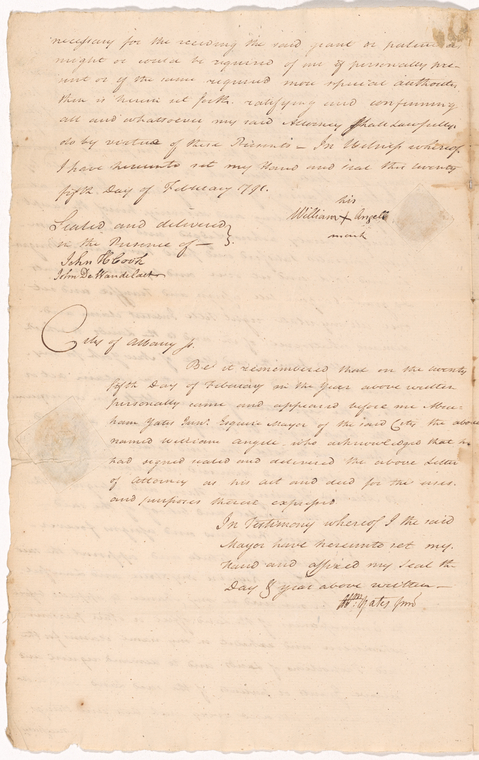 necessary for the receiving the said grant or patent as
might or could be required of me if personally pre-
sent or if the same required more special authority
than is herein set forth. ratifying and confirming
all and whatsoever my said Attorney Shall Lawfully
do by vertue of these Presents — In Witness whereof
I have hereunto set my Hand and Seal this twenty
fifth Day of February
his
William + Angell
mark
Sealed and delivered
in the Presence of —
John Cook
John De Wandelaer
City of Albany ss.
Be it remembered that on the twenty
fifth Day of February in the Year above written
personally came and appeared before me Abra-
ham Yates Junr. Esquire Mayor of the said City the above
named William Angell, who acknowledged that he
had signed sealed and delivered the above Letter
of Attorney as his act and deed for the uses
and purposes therein expressed
In Testimony whereof I the said
Mayor have hereunto set my
hand and affixed my Seal the
Day & year above written —
Abm. Yates Junr.